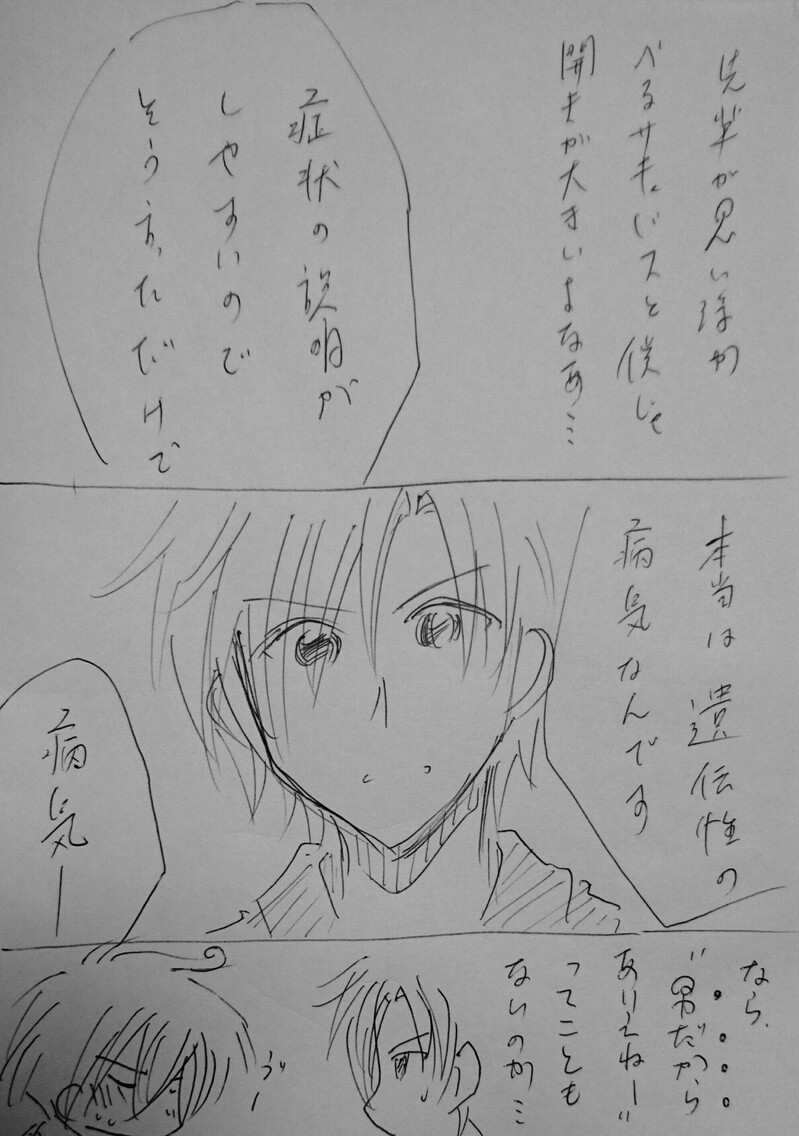 先輩が思い浮か
べるサキュバスと僕じゃ
開きが大きいよなあ…
症状の説明が
しやすいので
そう言っただけで
本当は遺伝性の
病気なんです
病気ー
なら、
"男だから
ありえねー"
ってことも
ないのか…
ゔー